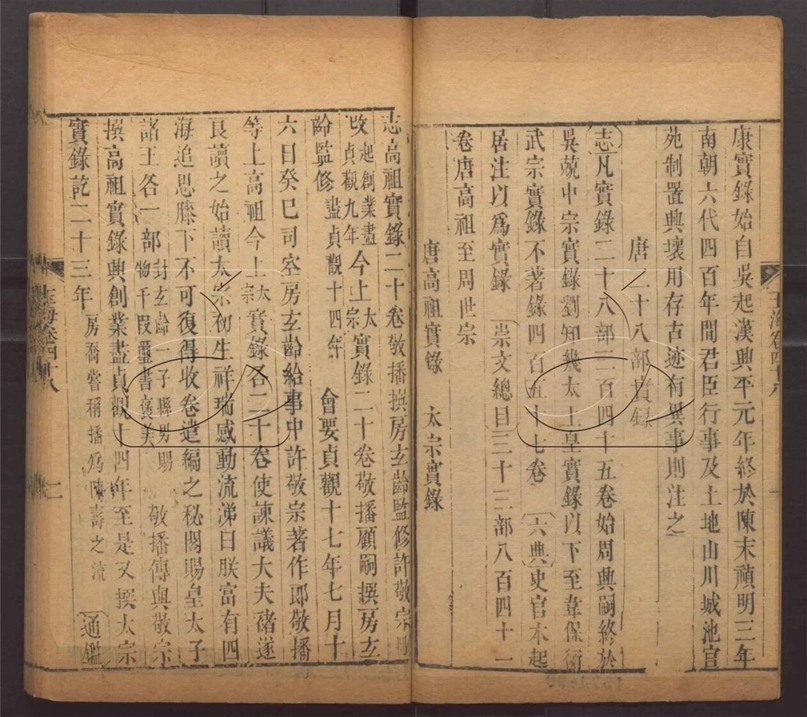 康實錄始自吳起漢興平元年終於陳末禎明三年
南朝六代四百年間君臣行事及土地山川城池宮
苑制置興壞用存古迹有異事則注之
唐二十八部實錄
志凡實錄二十八部三百四十五卷始周興嗣終於
吳兢中宗實錄劉知幾太上皇實錄以下至韋保衡
武宗實錄不著錄四百五十七卷 六典史官本起
居注以爲實錄 崇文總目三十三部八百四十一
卷唐高祖至周世宗
唐高祖實錄 太宗實錄
志高祖實錄二十卷敬播撰房玄齡監修許敬宗
改起創業盡貞觀九年 今上太宗實錄二十卷敬播顧嗣撰房玄
齡監修盡貞觀十四年 會要貞觀十七年七月十
六日癸巳司空房玄齡給事中許敬宗著作郎敬播
等上高祖今上太宗實錄各二十卷使諫議大夫褚遂
良讀之始讀太宗初生祥瑞感動流涕曰朕富有四
海追思膝下不可復得收卷遣編之秘閣賜皇太子
諸王各一部封玄齡一子縣男賜物千段璽書襃美 敬播傳與敬宗
撰高祖實錄興創業盡貞觀十四年至是又撰太宗
實錄訖二十三年房喬嘗稱播爲陳壽之流 通鑑
玉海卷四十八
二